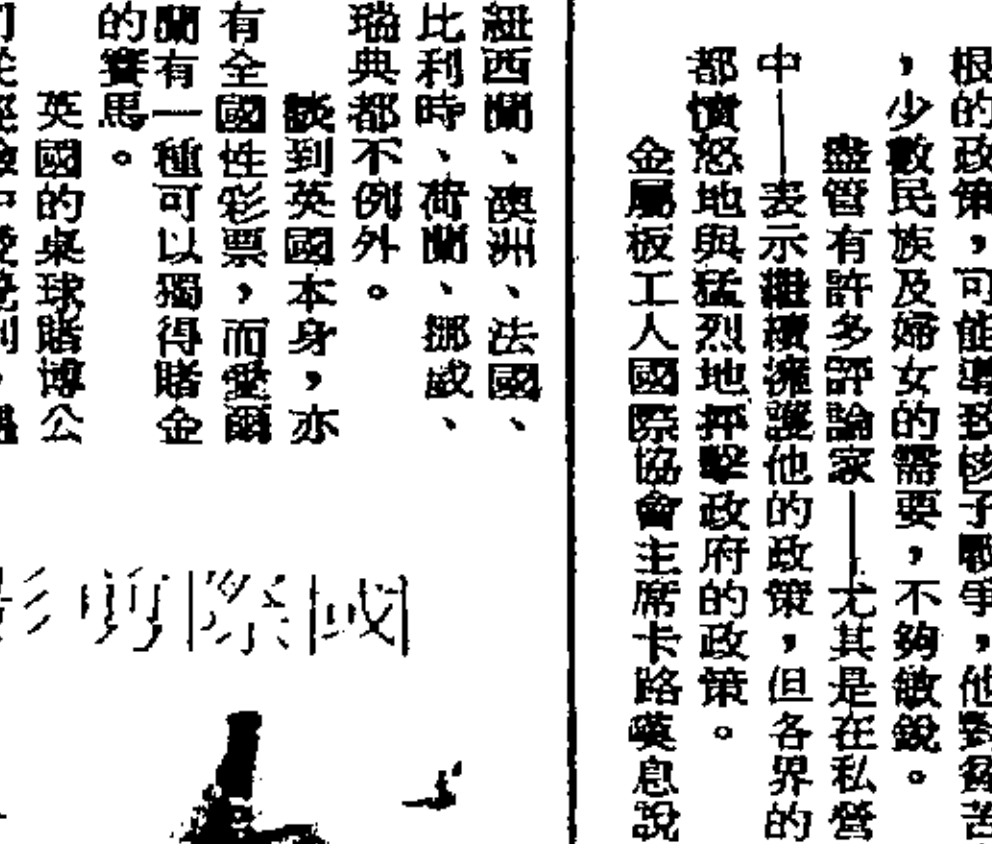 根的政策，可能導致核子戰爭，他對貧苦
，少數民族及婦女的需要，不夠敏銳。
盡管有許多評論家——尤其是在私營
中——表示繼續擁護他的政策，但各界的
都憤怒地與猛烈地抨擊政府的政策。
金屬板工人國際協會主席卡路嘆息說
紐西蘭、澳洲、法國、
比利時、荷蘭、挪威、
瑞典都不例外。
談到英國本身，亦
有全國性彩票，而愛爾
蘭有一種可以獨得賭金
的賽馬。
英國的桌球賭博公
國際剪影